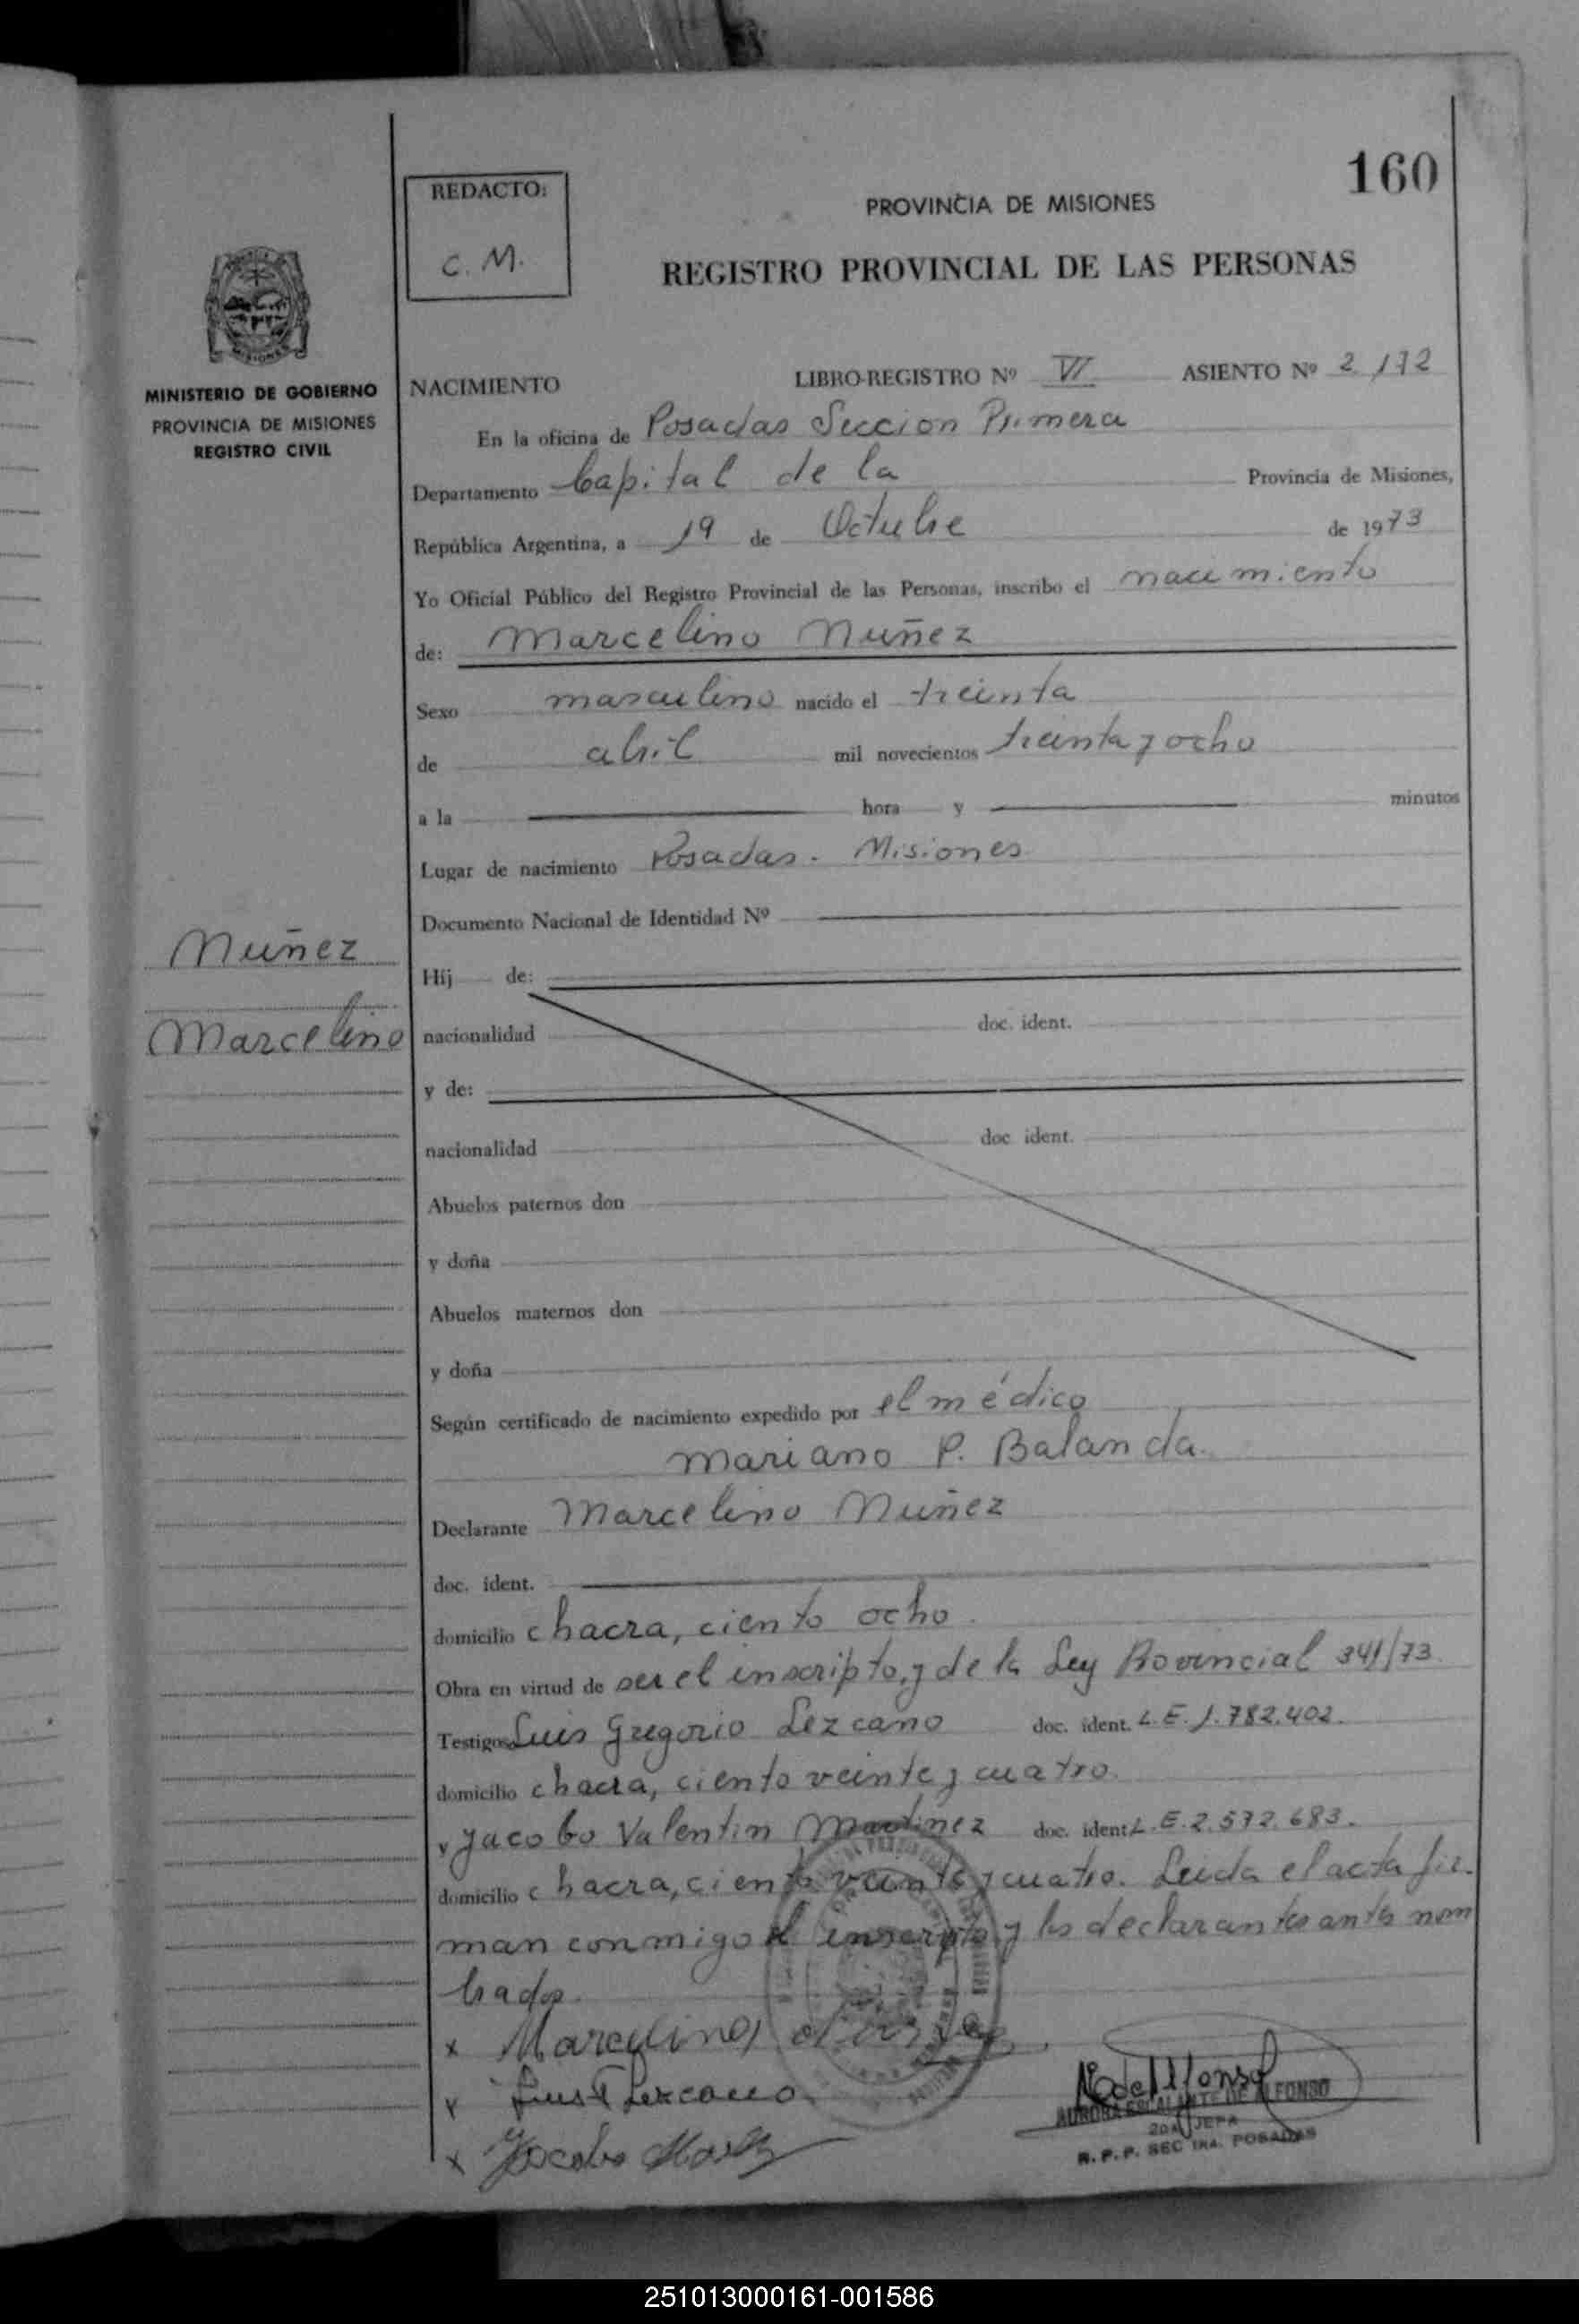 160
REDACTO:
C. M.
PROVINCIA DE MISIONES
REGISTRO PROVINCIAL DE LAS PERSONAS
MINISTERIO DE GOBIERNO
PROVINCIA DE MISIONES
REGISTRO CIVIL
NACIMIENTO LIBRO-REGISTRO Nº VI ASIENTO Nº 2.172
En la oficina de Posadas Seccion Primera
Departamento Capital de la Provincia de Misiones,
República Argentina, a 19 de Octubre de 1973
Yo Oficial Público del Registro Provincial de las Personas, inscribo el nacimiento
de: Marcelino Nuñez
Sexo masculino nacido el treinta
de abril mil novecientos treinta y ocho
a la hora y minutos
Lugar de nacimiento Posadas. Misiones
Documento Nacional de Identidad Nº
Nuñez
Marcelino
Hij de:
nacionalidad doc. ident.
y de:
nacionalidad doc. ident.
Abuelos paternos don
y doña
Abuelos maternos don
y doña
Según certificado de nacimiento expedido por el médico
Mariano P. Balanda.
Declarante Marcelino Nuñez
doc. ident.
domicilio chacra, ciento ocho.
Obra en virtud de ser el inscripto, y de la Ley Provincial 341/73.
Testigos Luis Gregorio Lezcano doc. ident. L.E. 1.782.402.
domicilio chacra, ciento veinte y cuatro.
y Jacobo Valentin Martinez doc. ident L.E. 2.572.683.
domicilio chacra, ciento veinte y cuatro. Leida el acta fir-
man conmigo el inscripto y los declarantes antes nom
brados.
x Marcelino
x Luis Lezcano
x Jacobo
AURORA ESCALANTE DE ALFONSO
2DA JEFA
R.P.P. SEC 1RA. POSADAS
251013000161-001586